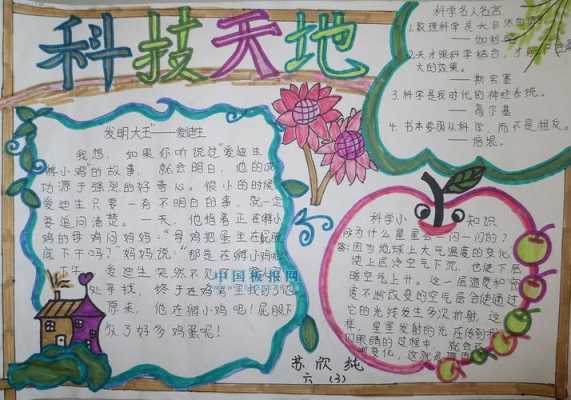 科技天地
发明大王"——爱迪生
我想，如果你听说过"爱迪生
孵小鸡"的故事，就会明白，他的成
功源于强烈的好奇心。很小的时候
爱迪生只要一有不明白的事，就一定
要追问清楚。一天，他指着正在孵小
鸡的母鸡问妈妈："母鸡把蛋坐在屁股
底下干吗？"妈妈说："那是在孵小鸡呢
下午，爱迪生突然不见了
处寻找，终于在鸡窝里找到了他
原来，他在孵小鸡呢！屁股下
放了好多鸡蛋呢！
中国板报网
科学名人名言
1.数理科学是大自然
——伽利略
2.天才跟科学结合，才能
大的效果。
——斯宾塞
3.科学是我时代的神经系统。
——高尔基
4.书本要服从科学，而不是相反。
——培根。
科学小知识
问为什么星星会一闪一闪的？
答:因为地球上大气温度的变化，
使上层冷空气下沉，也使下层
暖空气上升。这一层温度和密
度不断改变的空气层会使通过
它的光线发生多次折射，这
样，星星发射的光在传到我
们眼睛的过程中，就会
变化，这就是
苏欣纯
六（3）